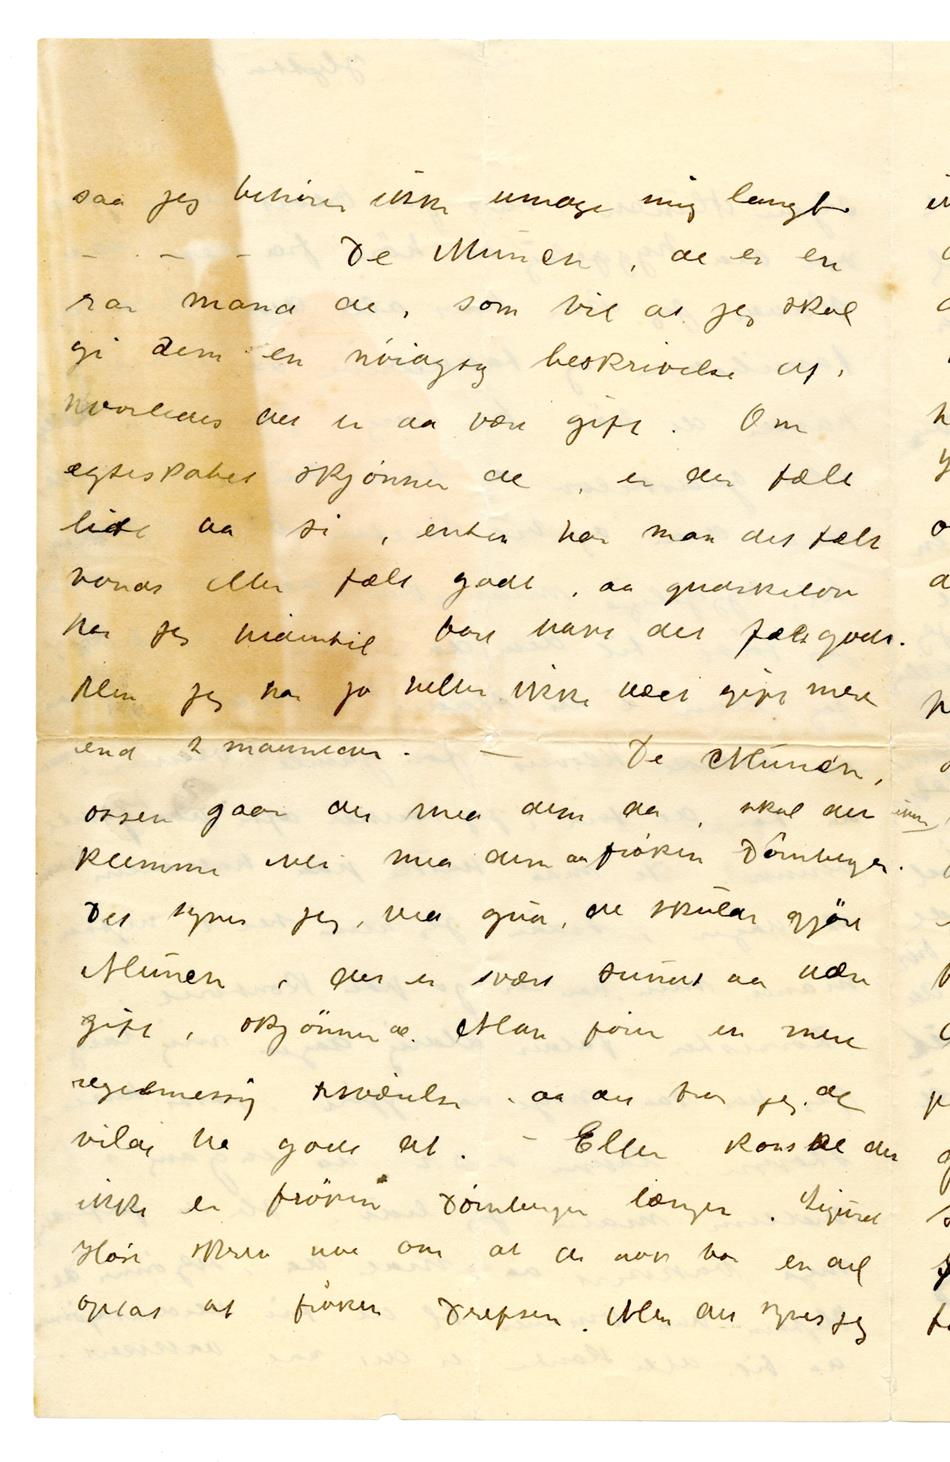 saa jeg behöver ikke umage mig langt
- . - - De Münch, de er en
rar mand de, som vil at jeg skal
gi dem en nöiagtig beskrivelse af,
hvorledes det er aa være gift. Om
egteskabet skjönner de, er der fælt
lidt aa si, enten har man det fælt
vondt eller fælt godt, aa gudskelov
har jeg hidentil bare havt det fælt godt.
Men jeg har jo heller ikke vært gift mere
end 2 maaneder. — De Münch,
ossen gaar det med dem da, skal det ikke
klemme vei med dem aa fröken Dörnberger.
Det synes jeg, ved gud, de skulde gjöre
Münch, det er svært sundt aa være
gift, skjönner de. Man förer en mere
regelmessig tilværelse, aa det tror jeg de
vilde ha godt at. - Eller kanske det
ikke er fröken Dörnberger længer. Sigurd
Höst skrev noe om at de nok var en del
optat af fröken Drefsen. Men det synes jeg